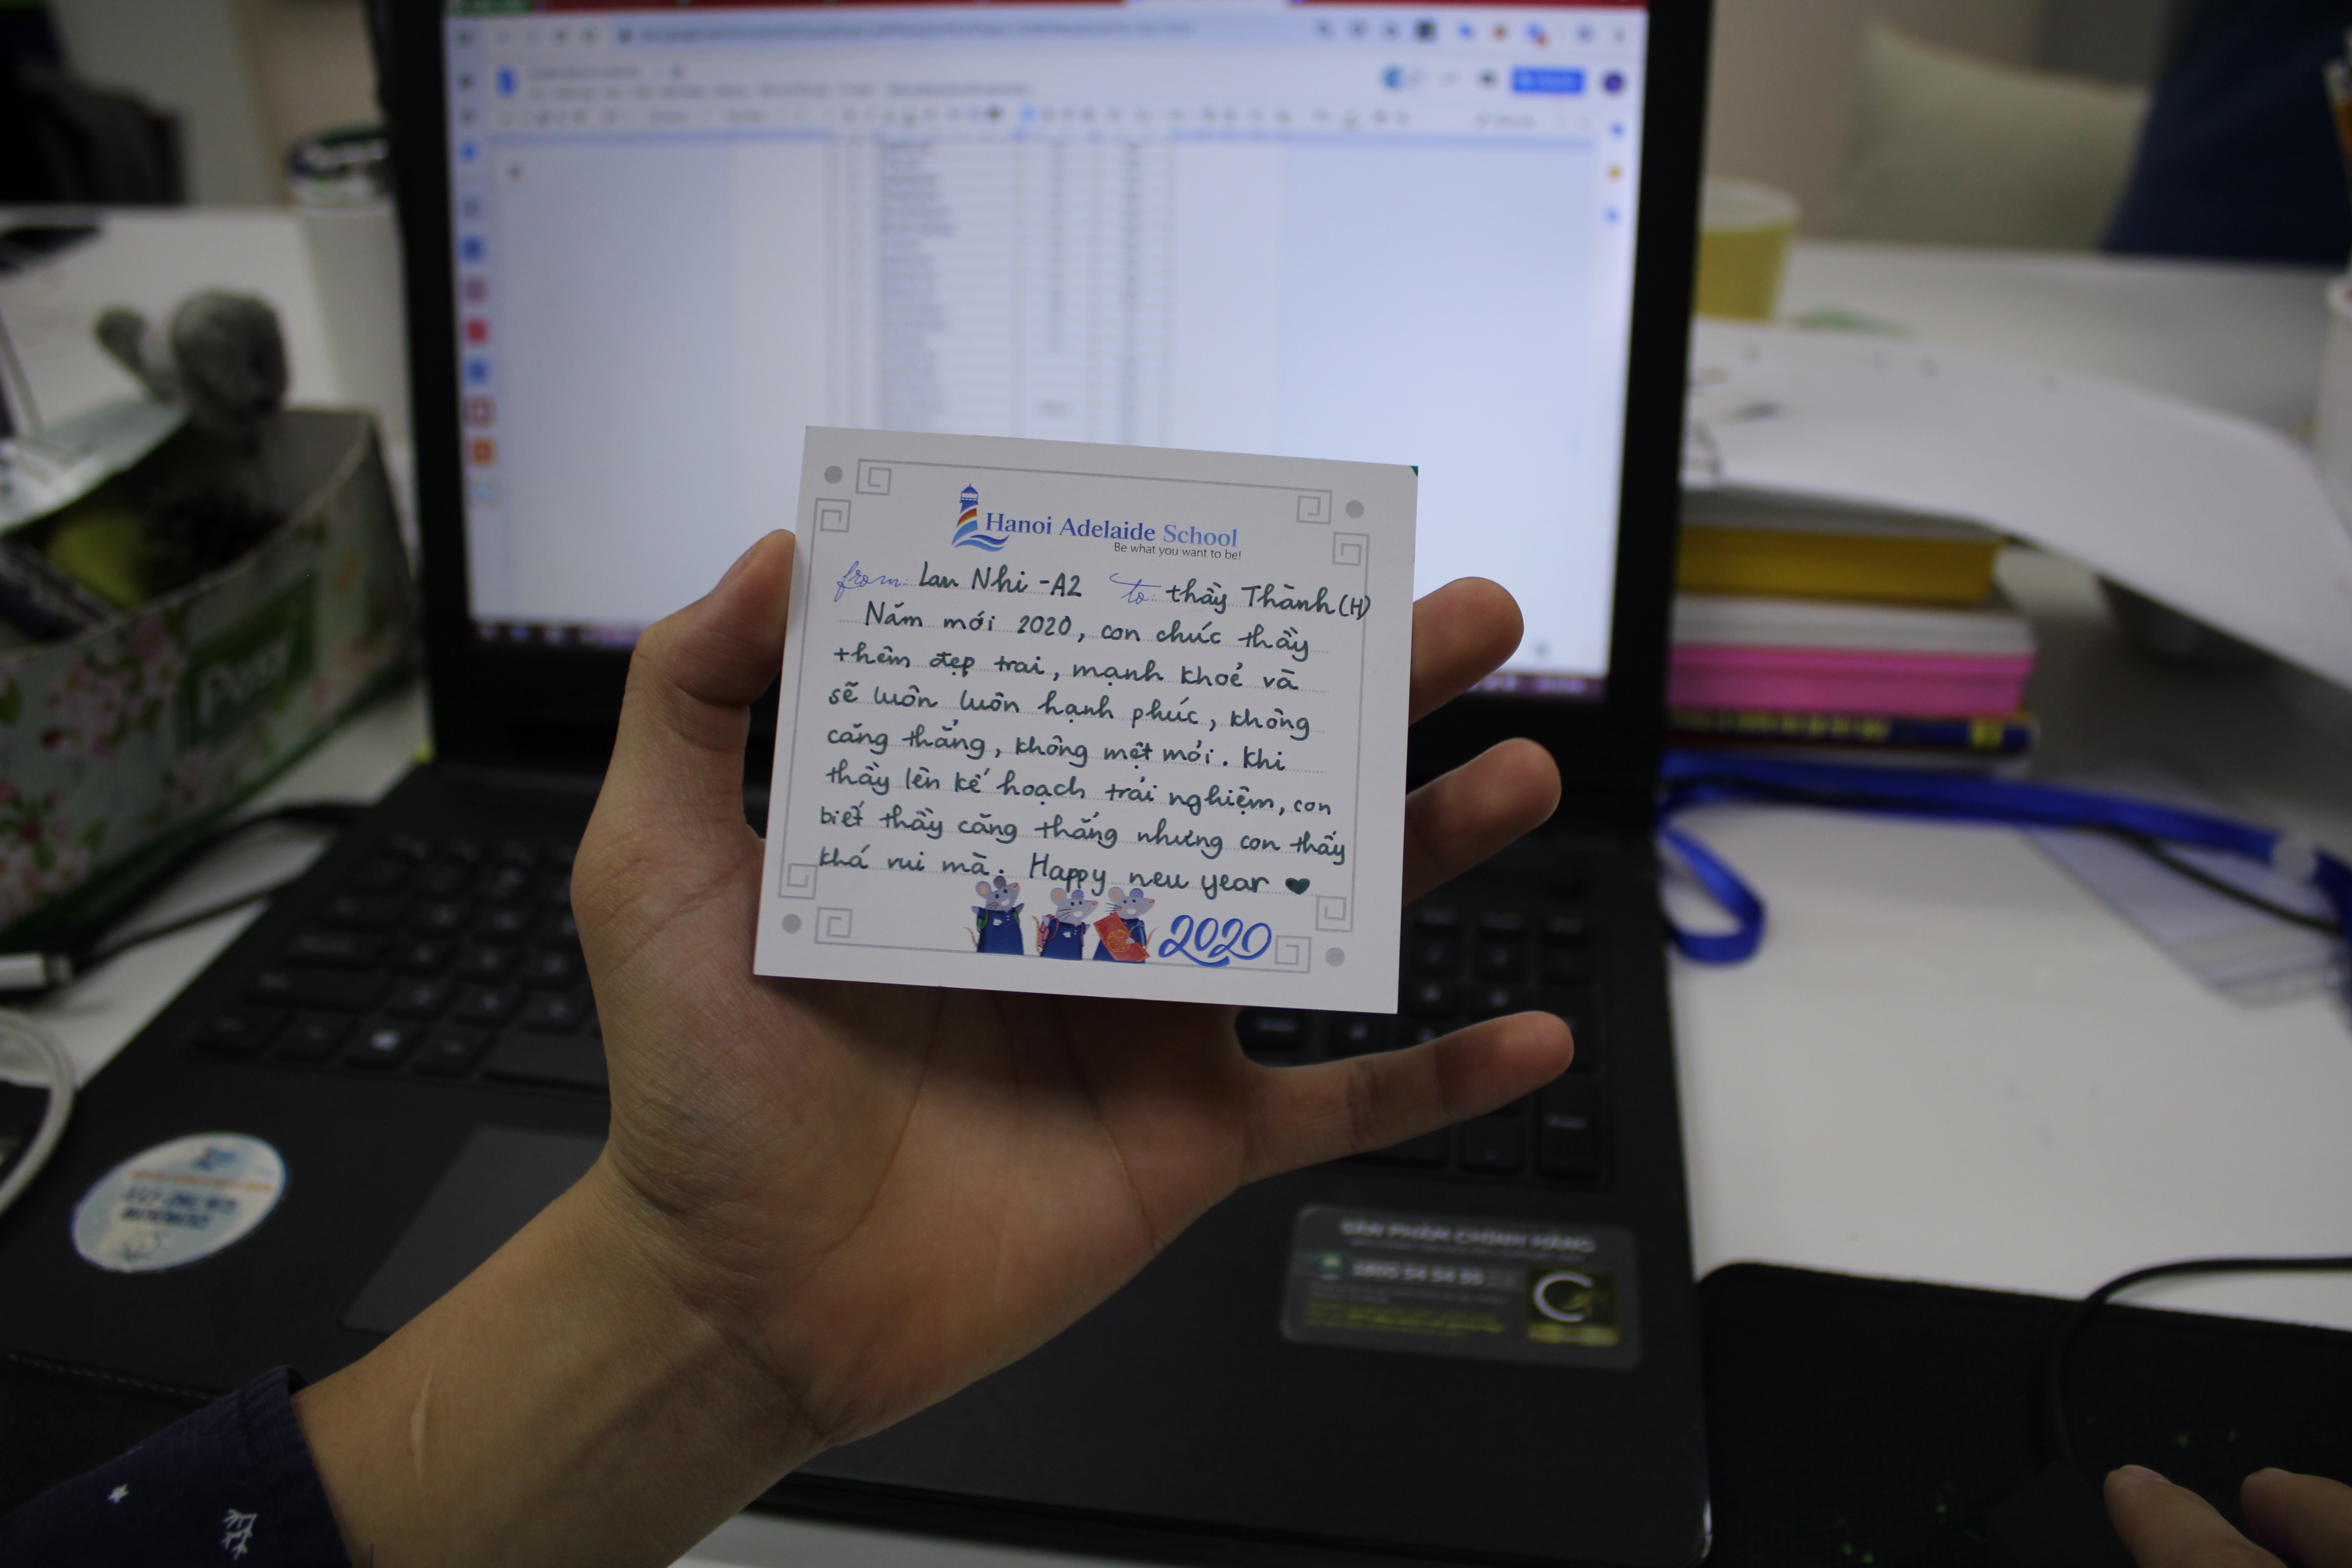 Hanoi Adelaide School
Be what you want to be!
from: Lan Nhi - A2 to: thầy Thành (H)
Năm mới 2020, con chúc thầy
thêm đẹp trai, mạnh khoẻ và
sẽ luôn luôn hạnh phúc, không
căng thẳng, không mệt mỏi. Khi
thầy lên kế hoạch trải nghiệm, con
biết thầy căng thẳng nhưng con thấy
khá vui mà. Happy new year ♥
2020
Posy
SẢN PHẨM CHÍNH HÃNG
1800 54 54 55